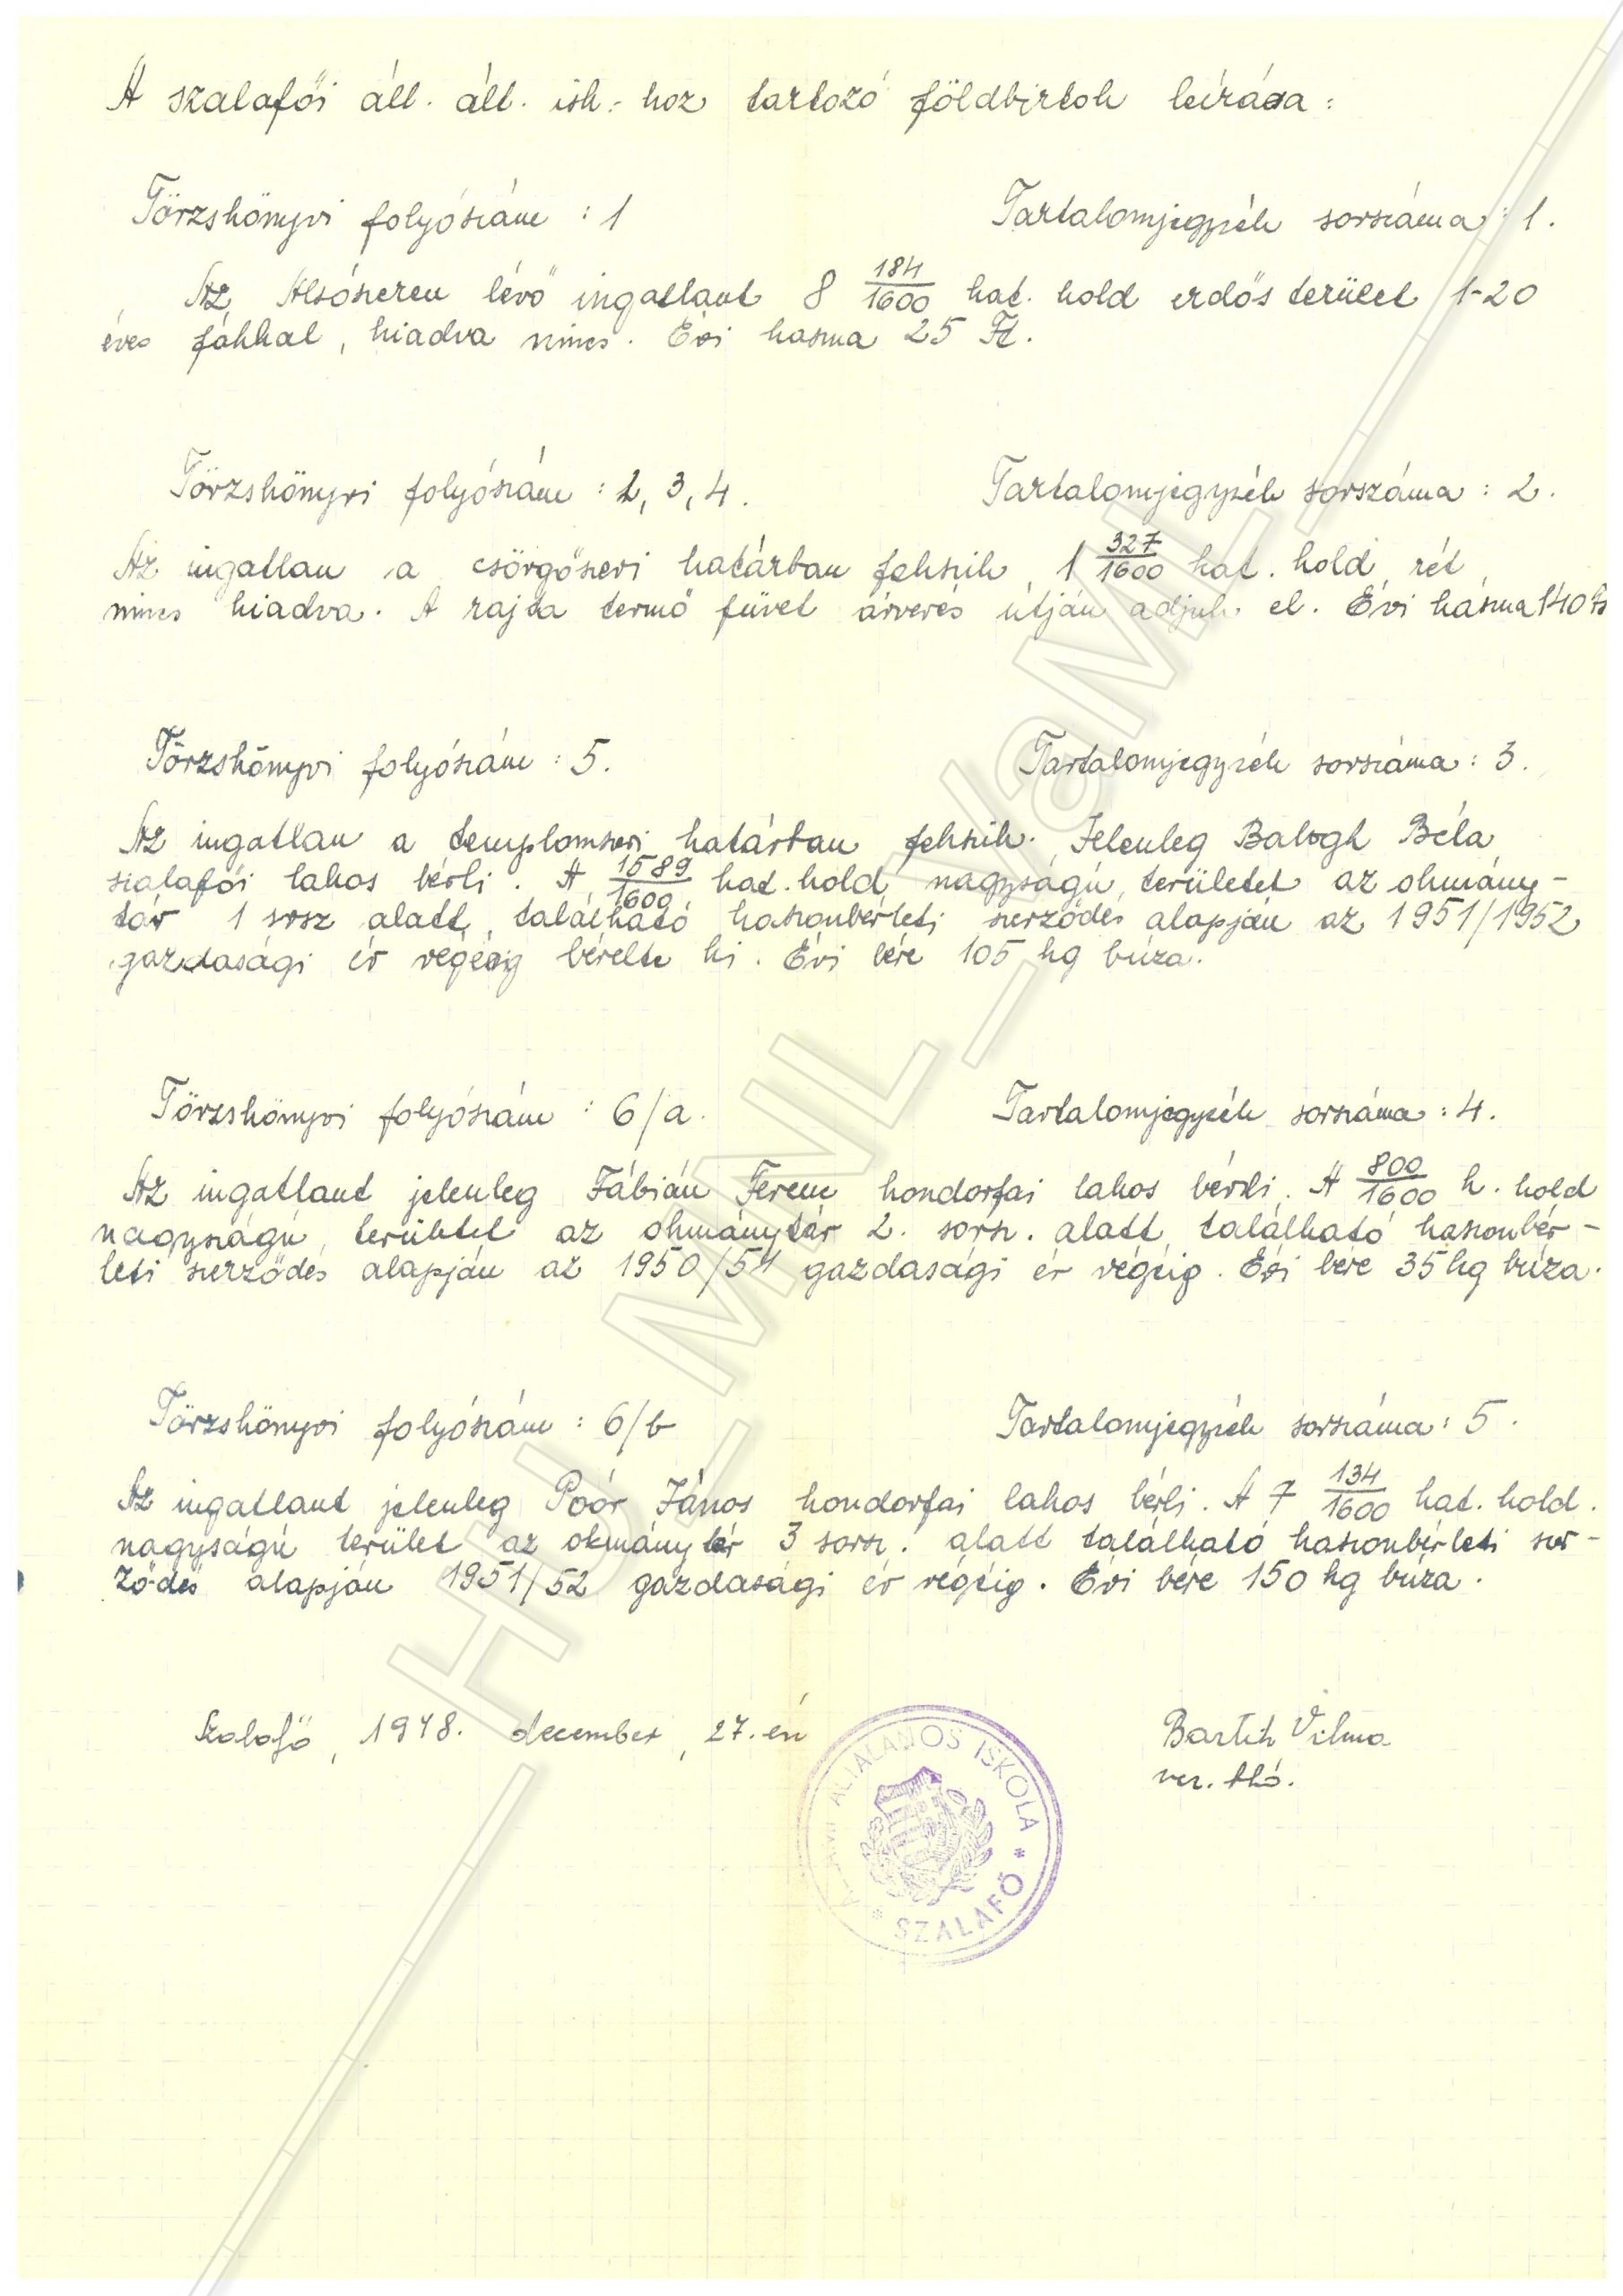 A szalafői áll. ált. isk.-hoz tartozó földbirtok leírása:
Törzskönyvi folyószám: 1 Tartalomjegyzék sorszáma: 1.
Az Alsószeren lévő ingatlant 8 184/1600 kat. hold erdős terület 1-20
éves fákkal, kiadva nincs. Évi haszna 25 Ft.
Törzskönyvi folyószám: 2, 3, 4. Tartalomjegyzék sorszáma: 2.
Az ingatlan a csörgőszeri határban fekszik, 1 327/1600 kat. hold rét,
nincs kiadva. A rajta termő füvet árverés útján adjuk el. Évi haszna 140 Ft
Törzskönyvi folyószám: 5. Tartalomjegyzék sorszáma: 3.
Az ingatlan a templomszeri határban fekszik. Jelenleg Balogh Béla
szalafői lakos bérli. A 1589/1600 kat. hold nagyságú területet az okmány-
tár 1 srsz alatt található haszonbérleti szerződés alapján az 1951/1952
gazdasági év végéig bérelte ki. Évi bére 105 kg búza.
Törzskönyvi folyószám: 6/a. Tartalomjegyzék sorszáma: 4.
Az ingatlant jelenleg Fábián Ferenc kondorfai lakos bérli. A 800/1600 k. hold
nagyságú területet az okmánytár 2. sorsz. alatt található haszonbér-
leti szerződés alapján az 1950/51 gazdasági év végéig. Évi bére 35 kg búza.
Törzskönyvi folyószám: 6/b Tartalomjegyzék sorszáma: 5.
Az ingatlant jelenleg Poór János kondorfai lakos bérli. A 7 134/1600 kat. hold.
nagyságú terület az okmánytár 3 sorsz. alatt található haszonbérleti szer-
ződés alapján 1951/52 gazdasági év végéig. Évi bére 150 kg búza.
Szalafő, 1948. december, 27.-én
Vilma
ÁLTALÁNOS ISKOLA
* SZALAFŐ *
HU_MNL_VaML_